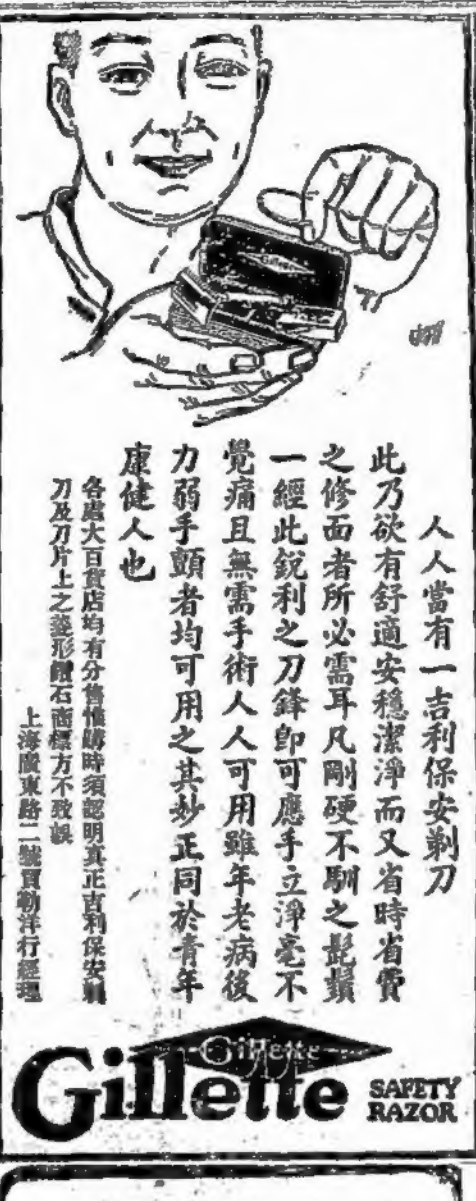 Gillette
人人當有一吉利保安剃刀
此乃欲有舒適安穩潔淨而又省時省費
之修面者所必需耳凡剛硬不馴之髭鬚
一經此銳利之刀鋒卽可應手立淨毫不
覺痛且無需手術人人可用雖年老病後
力弱手顫者均可用之其妙正同於青年
康健人也
各處大百貨店均有分售惟購時須認明真正吉利保安剃
刀及刀片上之菱形鑽石商標方不致誤
上海廣東路二號貢勒洋行經理
Gillette
Gillette
SAFETY
RAZOR